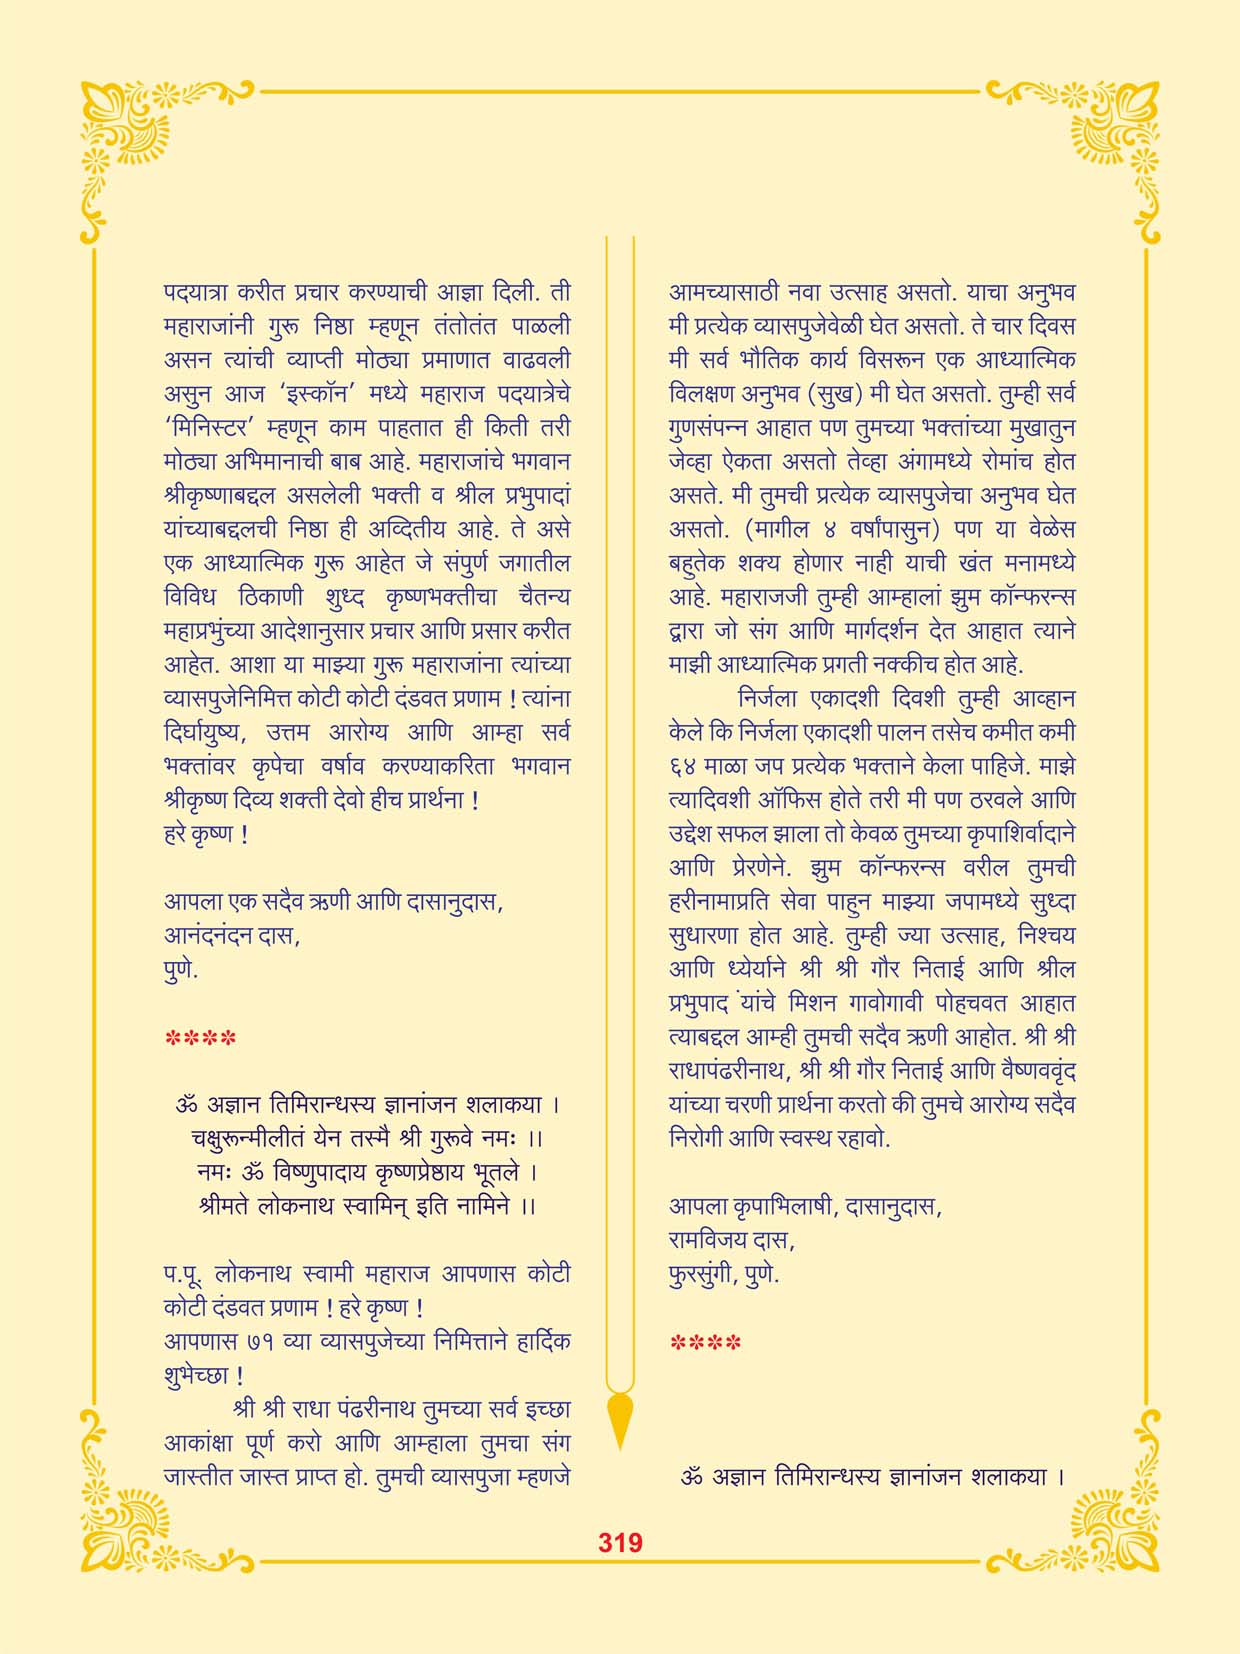 पदयात्रा करीत प्रचार करण्याची आज्ञा दिली. ती
महाराजांनी गुरू निष्ठा म्हणून तंतोतंत पाळली
असन त्यांची व्याप्ती मोठ्या प्रमाणात वाढवली
असुन आज ‘इस्कॉन’ मध्ये महाराज पदयात्रेचे
‘मिनिस्टर’ म्हणून काम पाहतात ही किती तरी
मोठ्या अभिमानाची बाब आहे. महाराजांचे भगवान
श्रीकृष्णाबद्दल असलेली भक्ती व श्रील प्रभुपादां
यांच्याबद्दलची निष्ठा ही अव्दितीय आहे. ते असे
एक आध्यात्मिक गुरू आहेत जे संपुर्ण जगातील
विविध ठिकाणी शुध्द कृष्णभक्तीचा चैतन्य
महाप्रभुंच्या आदेशानुसार प्रचार आणि प्रसार करीत
आहेत. आशा या माझ्या गुरू महाराजांना त्यांच्या
व्यासपुजेनिमित्त कोटी कोटी दंडवत प्रणाम ! त्यांना
दिर्घायुष्य, उत्तम आरोग्य आणि आम्हा सर्व
भक्तांवर कृपेचा वर्षाव करण्याकरिता भगवान
श्रीकृष्ण दिव्य शक्ती देवो हीच प्रार्थना !
हरे कृष्ण !
आपला एक सदैव ऋणी आणि दासानुदास,
आनंदनंदन दास,
पुणे.
****
ॐ अज्ञान तिमिरान्धस्य ज्ञानांजन शलाकया ।
चक्षुरून्मीलीतं येन तस्मै श्री गुरूवे नमः ।।
नमः ॐ विष्णुपादाय कृष्णप्रेष्ठाय भूतले ।
श्रीमते लोकनाथ स्वामिन् इति नामिने ।।
प.पू. लोकनाथ स्वामी महाराज आपणास कोटी
कोटी दंडवत प्रणाम ! हरे कृष्ण !
आपणास ७१ व्या व्यासपुजेच्या निमित्ताने हार्दिक
शुभेच्छा !
श्री श्री राधा पंढरीनाथ तुमच्या सर्व इच्छा
आकांक्षा पूर्ण करो आणि आम्हाला तुमचा संग
जास्तीत जास्त प्राप्त हो. तुमची व्यासपुजा म्हणजे
आमच्यासाठी नवा उत्साह असतो. याचा अनुभव
मी प्रत्येक व्यासपुजेवेळी घेत असतो. ते चार दिवस
मी सर्व भौतिक कार्य विसरून एक आध्यात्मिक
विलक्षण अनुभव (सुख) मी घेत असतो. तुम्ही सर्व
गुणसंपन्न आहात पण तुमच्या भक्तांच्या मुखातुन
जेव्हा ऐकता असतो तेव्हा अंगामध्ये रोमांच होत
असते. मी तुमची प्रत्येक व्यासपुजेचा अनुभव घेत
असतो. (मागील ४ वर्षांपासुन) पण या वेळेस
बहुतेक शक्य होणार नाही याची खंत मनामध्ये
आहे. महाराजजी तुम्ही आम्हालां झुम कॉन्फरन्स
द्वारा जो संग आणि मार्गदर्शन देत आहात त्याने
माझी आध्यात्मिक प्रगती नक्कीच होत आहे.
निर्जला एकादशी दिवशी तुम्ही आव्हान
केले कि निर्जला एकादशी पालन तसेच कमीत कमी
६४ माळा जप प्रत्येक भक्ताने केला पाहिजे. माझे
त्यादिवशी ऑफिस होते तरी मी पण ठरवले आणि
उद्देश सफल झाला तो केवळ तुमच्या कृपाशिर्वादाने
आणि प्रेरणेने. झुम कॉन्फरन्स वरील तुमची
हरीनामाप्रति सेवा पाहुन माझ्या जपामध्ये सुध्दा
सुधारणा होत आहे. तुम्ही ज्या उत्साह, निश्चय
आणि ध्येर्याने श्री श्री गौर निताई आणि श्रील
प्रभुपाद ंयांचे मिशन गावोगावी पोहचवत आहात
त्याबद्दल आम्ही तुमची सदैव ऋणी आहोत. श्री श्री
राधापंढरीनाथ, श्री श्री गौर निताई आणि वैष्णववृंद
यांच्या चरणी प्रार्थना करतो की तुमचे आरोग्य सदैव
निरोगी आणि स्वस्थ रहावो.
आपला कृपाभिलाषी, दासानुदास,
रामविजय दास,
फुरसुंगी, पुणे.
****
ॐ अज्ञान तिमिरान्धस्य ज्ञानांजन शलाकया ।
319